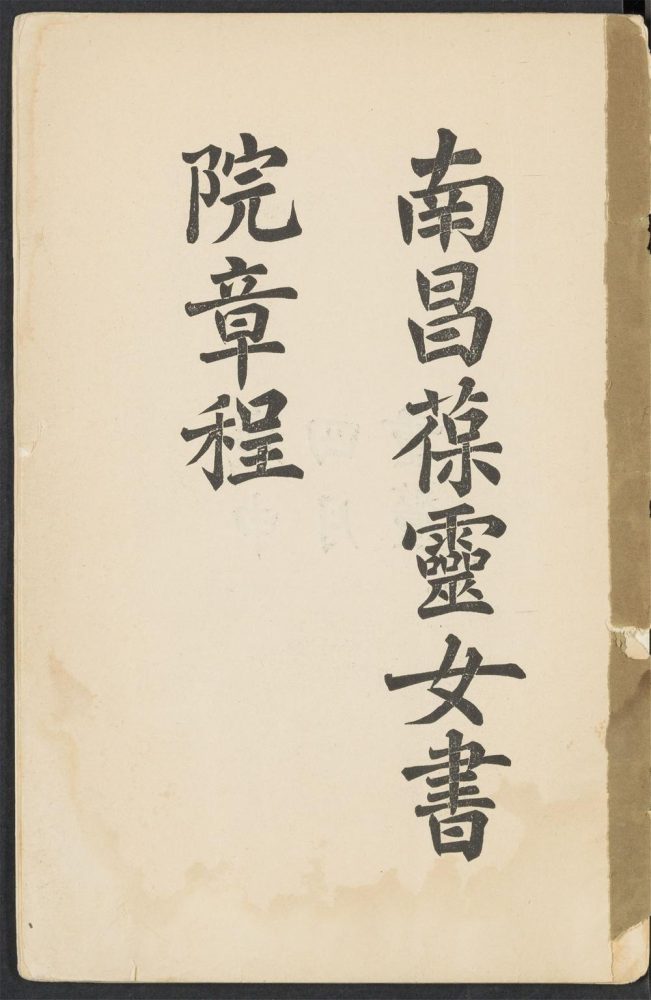 南昌葆靈女書
院章程